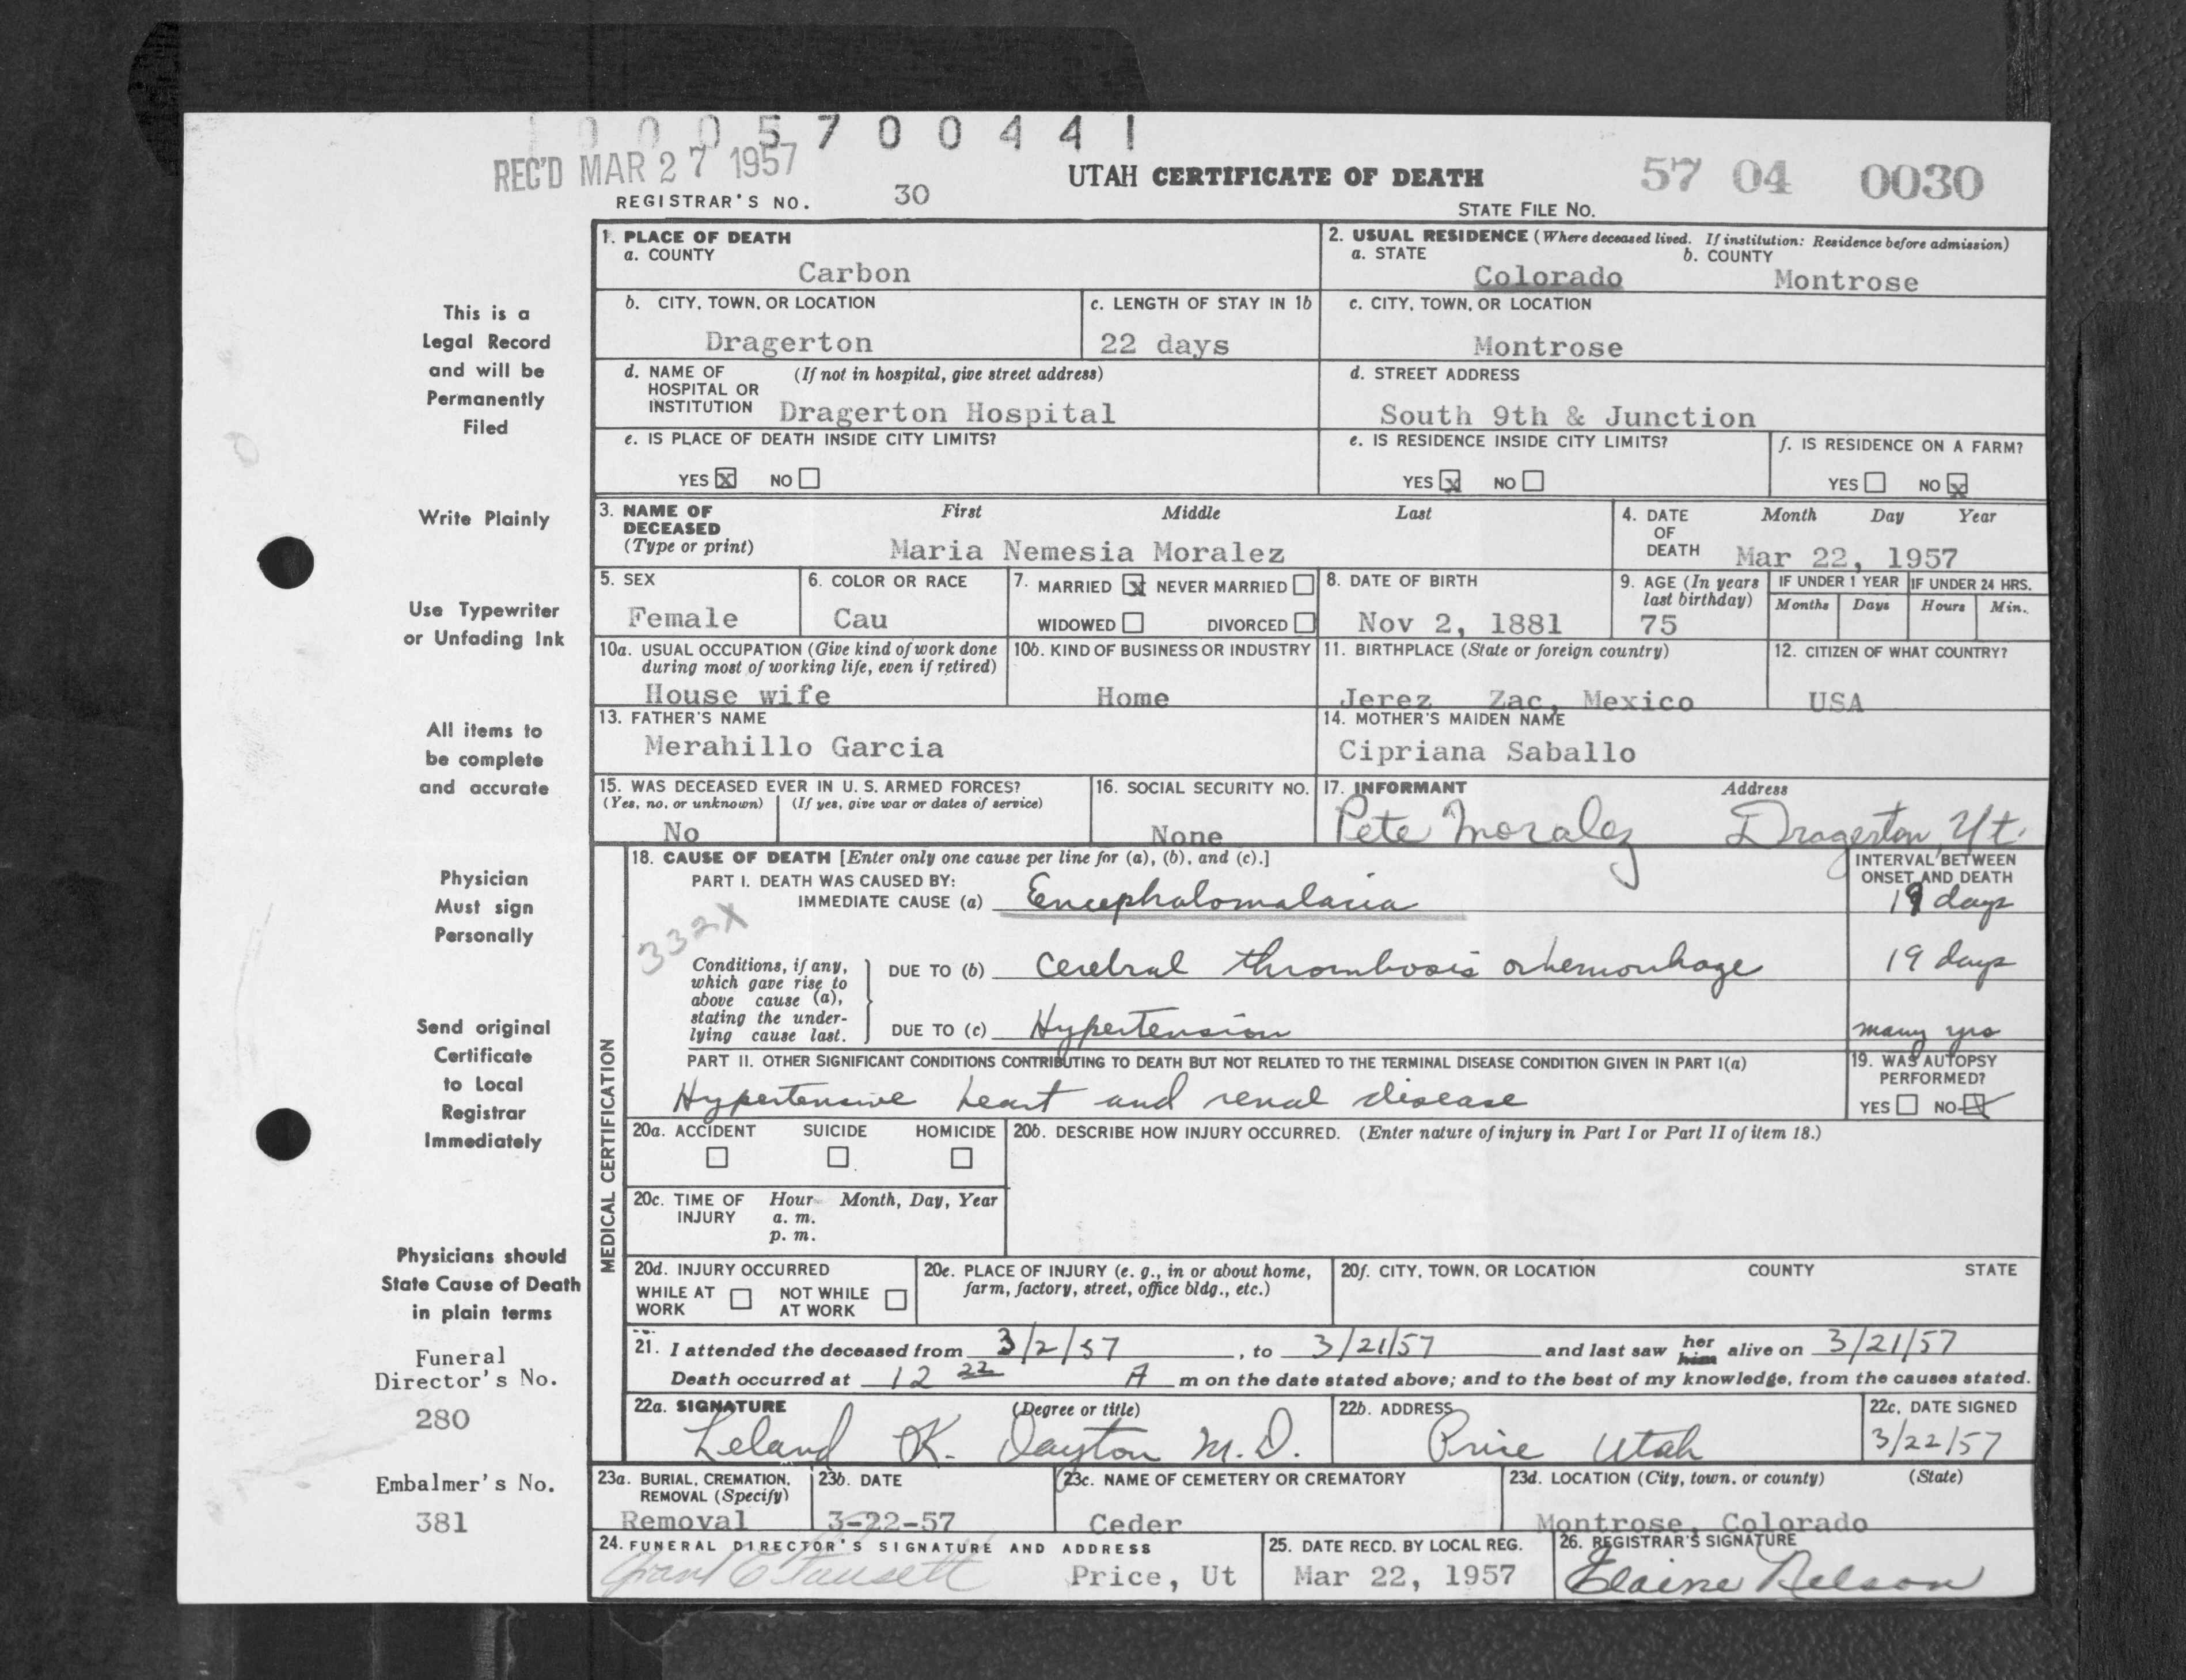 0 0 0 5 7 0 0 4 4 1
REC'D MAR 27 1957
UTAH CERTIFICATE OF DEATH
57 04 0030
REGISTRAR'S NO. 30
STATE FILE NO.
This is a
Legal Record
and will be
Permanently
Filed
Write Plainly
Use Typewriter
or Unfading Ink
All items to
be complete
and accurate
Physician
Must sign
Personally
Send original
Certificate
to Local
Registrar
Immediately
Physicians should
State Cause of Death
in plain terms
Funeral
Director's No.
280
Embalmer's No.
381
1. PLACE OF DEATH
a. COUNTY
Carbon
2. USUAL RESIDENCE (Where deceased lived. If institution: Residence before admission)
a. STATE b. COUNTY
Colorado Montrose
b. CITY, TOWN, OR LOCATION
Dragerton
c. LENGTH OF STAY IN 1b
22 days
c. CITY, TOWN, OR LOCATION
Montrose
d. NAME OF (If not in hospital, give street address)
HOSPITAL OR
INSTITUTION Dragerton Hospital
d. STREET ADDRESS
South 9th & Junction
e. IS PLACE OF DEATH INSIDE CITY LIMITS?
YES X NO
e. IS RESIDENCE INSIDE CITY LIMITS?
YES X NO
f. IS RESIDENCE ON A FARM?
YES NO X
3. NAME OF First Middle Last
DECEASED
(Type or print) Maria Nemesia Moralez
4. DATE Month Day Year
OF
DEATH Mar 22, 1957
5. SEX
Female
6. COLOR OR RACE
Cau
7. MARRIED X NEVER MARRIED
WIDOWED DIVORCED
8. DATE OF BIRTH
Nov 2, 1881
9. AGE (In years
last birthday)
75
IF UNDER 1 YEAR IF UNDER 24 HRS.
Months Days Hours Min.
10a. USUAL OCCUPATION (Give kind of work done
during most of working life, even if retired)
House wife
10b. KIND OF BUSINESS OR INDUSTRY
Home
11. BIRTHPLACE (State or foreign country)
Jerez Zac, Mexico
12. CITIZEN OF WHAT COUNTRY?
USA
13. FATHER'S NAME
Merahillo Garcia
14. MOTHER'S MAIDEN NAME
Cipriana Saballo
15. WAS DECEASED EVER IN U. S. ARMED FORCES?
(Yes, no, or unknown) (If yes, give war or dates of service)
No
16. SOCIAL SECURITY NO.
None
17. INFORMANT Address
Pete Moralez Dragerton, Ut.
MEDICAL CERTIFICATION
18. CAUSE OF DEATH [Enter only one cause per line for (a), (b), and (c).]
INTERVAL BETWEEN
ONSET AND DEATH
PART I. DEATH WAS CAUSED BY:
IMMEDIATE CAUSE (a) Encephalomalacia 19 days
332X
Conditions, if any,
which gave rise to
above cause (a),
stating the under-
lying cause last.
DUE TO (b) Cerebral thrombosis or hemorrhage 19 days
DUE TO (c) Hypertension many yrs
PART II. OTHER SIGNIFICANT CONDITIONS CONTRIBUTING TO DEATH BUT NOT RELATED TO THE TERMINAL DISEASE CONDITION GIVEN IN PART I(a)
Hypertensive heart and renal disease
19. WAS AUTOPSY
PERFORMED?
YES NO X
20a. ACCIDENT SUICIDE HOMICIDE
20b. DESCRIBE HOW INJURY OCCURRED. (Enter nature of injury in Part I or Part II of item 18.)
20c. TIME OF Hour Month, Day, Year
INJURY a. m.
p. m.
20d. INJURY OCCURRED
WHILE AT NOT WHILE
WORK AT WORK
20e. PLACE OF INJURY (e. g., in or about home,
farm, factory, street, office bldg., etc.)
20f. CITY, TOWN, OR LOCATION COUNTY STATE
21. I attended the deceased from 3/2/57, to 3/21/57 and last saw her him alive on 3/21/57
Death occurred at 12 22 A m on the date stated above; and to the best of my knowledge, from the causes stated.
22a. SIGNATURE (Degree or title)
Leland K. Dayton M.D.
22b. ADDRESS
Price Utah
22c. DATE SIGNED
3/22/57
23a. BURIAL, CREMATION,
REMOVAL (Specify)
Removal
23b. DATE
3-22-57
23c. NAME OF CEMETERY OR CREMATORY
Ceder
23d. LOCATION (City, town, or county) (State)
Montrose, Colorado
24. FUNERAL DIRECTOR'S SIGNATURE AND ADDRESS
Price, Ut
25. DATE RECD. BY LOCAL REG.
Mar 22, 1957
26. REGISTRAR'S SIGNATURE
Elaine Nelson